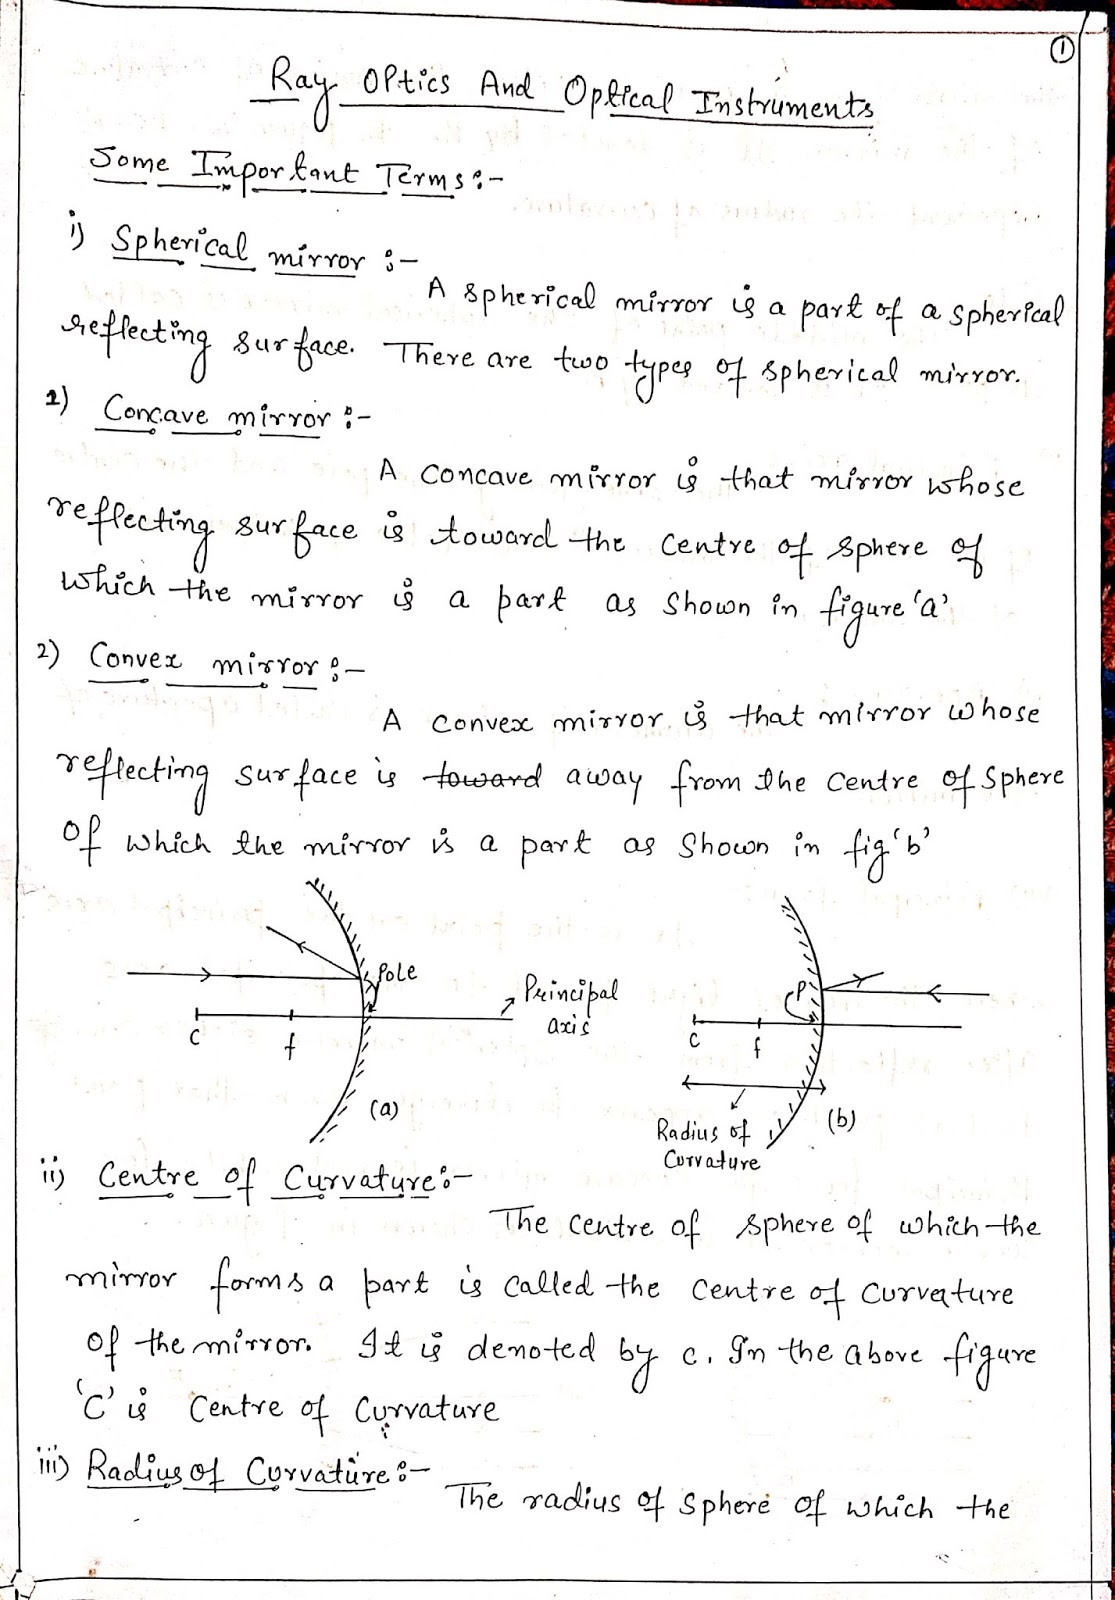 1
Ray Optics And Optical Instruments
Some Important Terms:-
i) Spherical mirror :-
A spherical mirror is a part of a spherical
reflecting surface. There are two types of spherical mirror.
1) Concave mirror :-
A concave mirror is that mirror whose
reflecting surface is toward the centre of sphere of
which the mirror is a part as shown in figure 'a'
2) Convex mirror :-
A convex mirror is that mirror whose
reflecting surface is toward away from the centre of sphere
of which the mirror is a part as shown in fig 'b'
Pole
Principal
axis
C
f
(a)
P
C
f
Radius of
Curvature
(b)
ii) Centre of Curvature:-
The centre of sphere of which the
mirror forms a part is called the centre of curvature
of the mirror. It is denoted by c. In the above figure
'C' is Centre of Curvature
iii) Radius of Curvature :-
The radius of sphere of which the